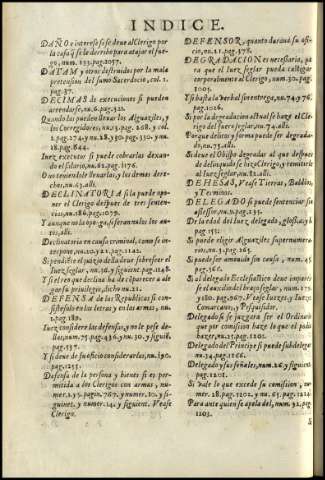 INDICE.
DAÑO e interese si se deue al Clerigo por
la casa q̃ se le derribò para atajar el fue-
go, num. 133. pag. 2057.
DATAS y otros destruidos por la mala
pretension del sumo Sacerdocio, col. 1.
pag. 37.
DECIMAS de execuciones si pueden
arrendarse, nu. 6. pag. 322.
Quando las pueden lleuar los Alguaziles, y
los Corregidores, nu. 35. pag. 208. y col.
1. pag. 274. y nu. 28. 330. pag. 330. y nu.
18. pag. 844.
Iuez executor si puede cobrarlas dexan-
do el salario, nu. 62. pag. 1176.
O no teniendole lleuarlas, y los demas dere-
chos, nu. 63. alli.
DECLINATORIA si la puede opo-
ner el Clerigo despues de tres senten-
cias, nu. 186. pag. 1079.
Y aunque no la oponga, si seran nulos los au-
tos, alli.
Declinatoria en causa criminal, como se in-
terpone, nu. 20. y 21. pag. 1142.
Si pendiẽte el juizio della deue sobreseer el
Iuez seglar, nu. 30. y siguient. pag. 1148.
Y si el reo que declina ha de parecer a ale-
gar su priuilegio, dicho nu. 21.
DEFENSA de las Republicas si con-
siste solo en los letras y en los armas, nu.
2. pag. 182.
Iuez considere las defensas, y no le pese de-
llas, num. 75. pag. 436. y nu. 30. y siguiẽ.
pag. 535.
Y si deue de su oficio considerarlas, nu. 190.
pag. 1253.
Defensa de la persona y bienes si es per-
mitida a los Clerigos con armas, nu-
mer. 15. pagin. 767. y numer. 10. y si-
guient. y numer. 14. y siguient. Vease
Clerigo.
DEFENSOR, quanto durarà su ofi-
cio, nu. 21. pag. 578.
DEGRADACION es necessaria, pa
ra que el Iuez seglar pueda castigar
corporalmente al Clerigo, num. 30. pag.
1003.
Y si basta la verbal sin entrega, nu. 74. y 76.
pag. 1026.
Si por la degradacion actual se haze el Cle-
rigo del fuero seglar, nu. 74. alli.
Porque delito y forma puede ser degradado,
nu. 75. alli.
Si deue el Obispo degradar al que despues
de delinquido se hizo Clerigo, y remitirle
al Iuez seglar, nu. 62. alli.
DEHESAS, Vease Tierras, Baldios,
y Terminos.
DELEGADO si puede sentenciar sin
assessor, nu. 9. pag. 235.
De la edad del Iuez delegado, glossa k, y h
pag. 152.
Si puede elegir Alguaziles supernumera-
rios, nu. 1. pag. 265.
Si puede ser amouido sin causa, num. 43.
pag. 565.
Si al delegado Ecclesiastico deue impartir-
se el auxilio del braço seglar, num. 179.
y 180. pag. 967. Vease Iuezes, y Iuez de
Comissario, y Pesquisidor.
Delegado si se juzgara ser el Ordinario
que por comission haze lo que el podia
hazer, nu. 25. pag. 1201.
Delegado del Principe si puede subdelegar,
nu. 24. pag. 1166.
Delegado y su señales, num. 26. y siguient.
pag. 1201.
Si vale lo que excede su comission, nu-
mer. 28. pag. 1202. y nu. 65. pag. 1214.
Para ante quien se apela del, num. 32. pag.
1203.